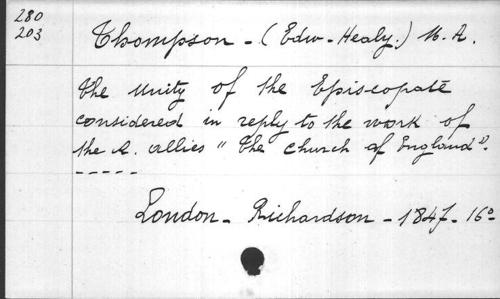 280
203
Thompson - (Edw - Healy.) M. A.
the Unity of the Episcopate
considered in reply to the work of
the A. Allies " the church of England ".
- - - - -
London - Richardson - 1847 - 16º